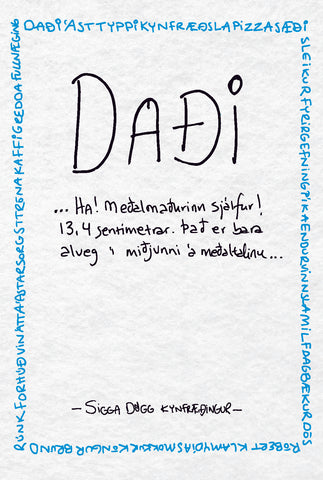 DAÐIÁSTTYPPIKYNFRÆÐSLAPIZZASÆÐI
SLEIKURFYRIRGEFNINGPÍKAENDURVINNSLAMILFDAGBÆKURDÓS
RÓBERTKLAMYDÍASMOKKURKÖNGURBRUND
RUNKFORHÚÐVINÁTTAÁSTARSORGSTRENAKAFFIGREDDAFULLNÆGING
DAÐI
... HA! Meðalmaðurinn sjálfur!
13,4 sentimetrar. Það er bara
alveg í miðjunni á meðaltalinu...
– SIGGA DÖGG KYNFRÆÐINGUR –